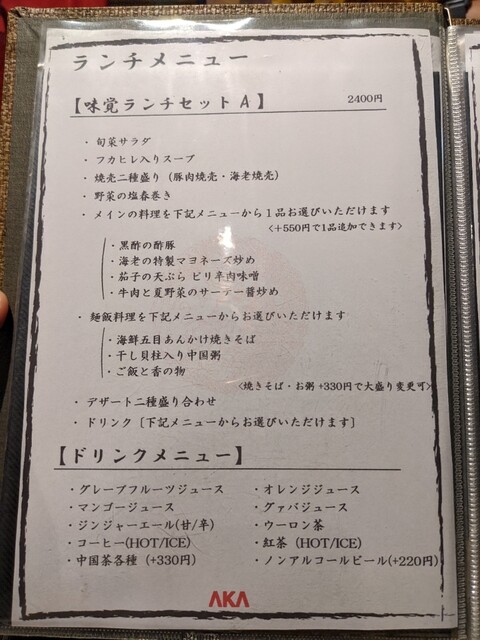 ランチメニュー
【味覚ランチセット A】 2400円
・旬菜サラダ
・フカヒレ入りスープ
・焼売二種盛り（豚肉焼売・海老焼売）
・野菜の塩春巻き
・メインの料理を下記メニューから１品お選びいただけます
<＋550円で1品追加できます>
・黒酢の酢豚
・海老の特製マヨネーズ炒め
・茄子の天ぷら ピリ辛肉味噌
・牛肉と夏野菜のサーテー醤炒め
・麺飯料理を下記メニューからお選びいただけます
・海鮮五目あんかけ焼きそば
・干し貝柱入り中国粥
・ご飯と香の物
<焼きそば・お粥 +330円で大盛り変更可>
・デザート二種盛り合わせ
・ドリンク［下記メニューからお選びいただけます］
【ドリンクメニュー】
・グレープフルーツジュース ・オレンジジュース
・マンゴージュース ・グァバジュース
・ジンジャーエール(甘/辛) ・ウーロン茶
・コーヒー(HOT/ICE) ・紅茶（HOT/ICE)
・中国茶各種（+330円） ・ノンアルコールビール(+220円)
AKA